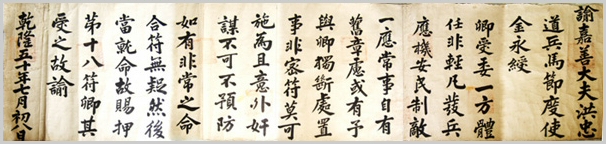 諭嘉善大夫洪忠
道兵馬節度使
金永綬
卿受委一方體
任非輕凡發兵
應機安民制敵
一應常事自有
舊章慮或有予
與卿獨斷處置
事非密符莫可
施爲且意外奸
謀不可不預防
如有非常之命
合符無疑然後
當就命故賜押
第十八符卿其
受之故諭
乾隆五十年七月初八日